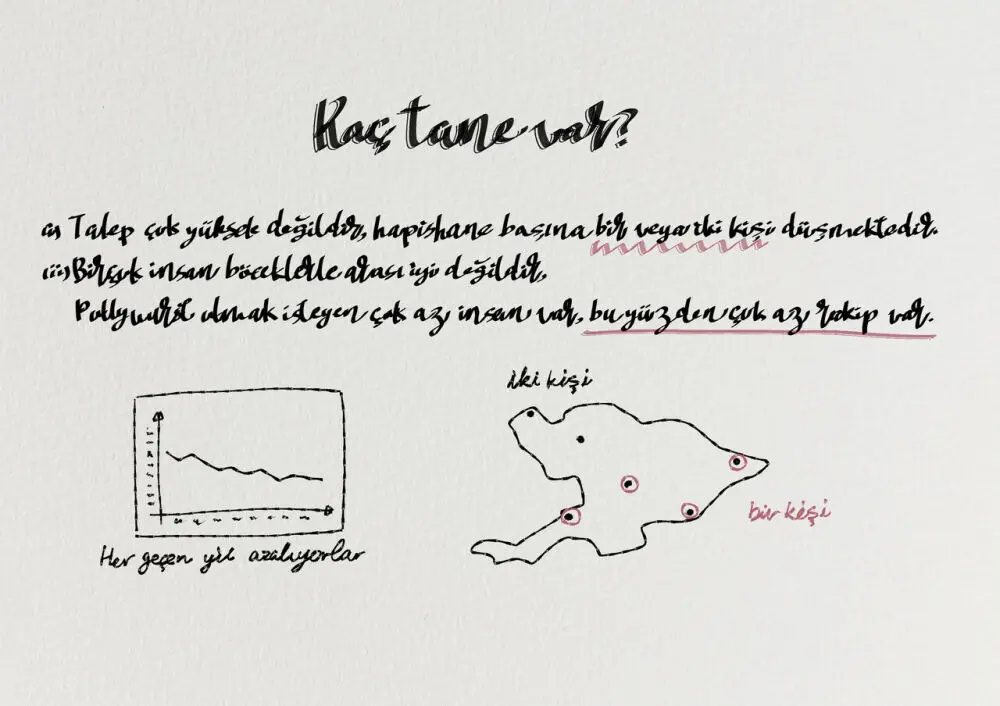 Kaç tane var?
i) Talep çok yüksek değildir, hapishane başına bir veya iki kişi düşmektedir.
ii) Birçok insan böceklerle arası iyi değildir,
olmak isteyen çok az insan var, bu yüzden çok az rakip var.
iki kişi
bir kişi
Her geçen yıl azalıyorlar